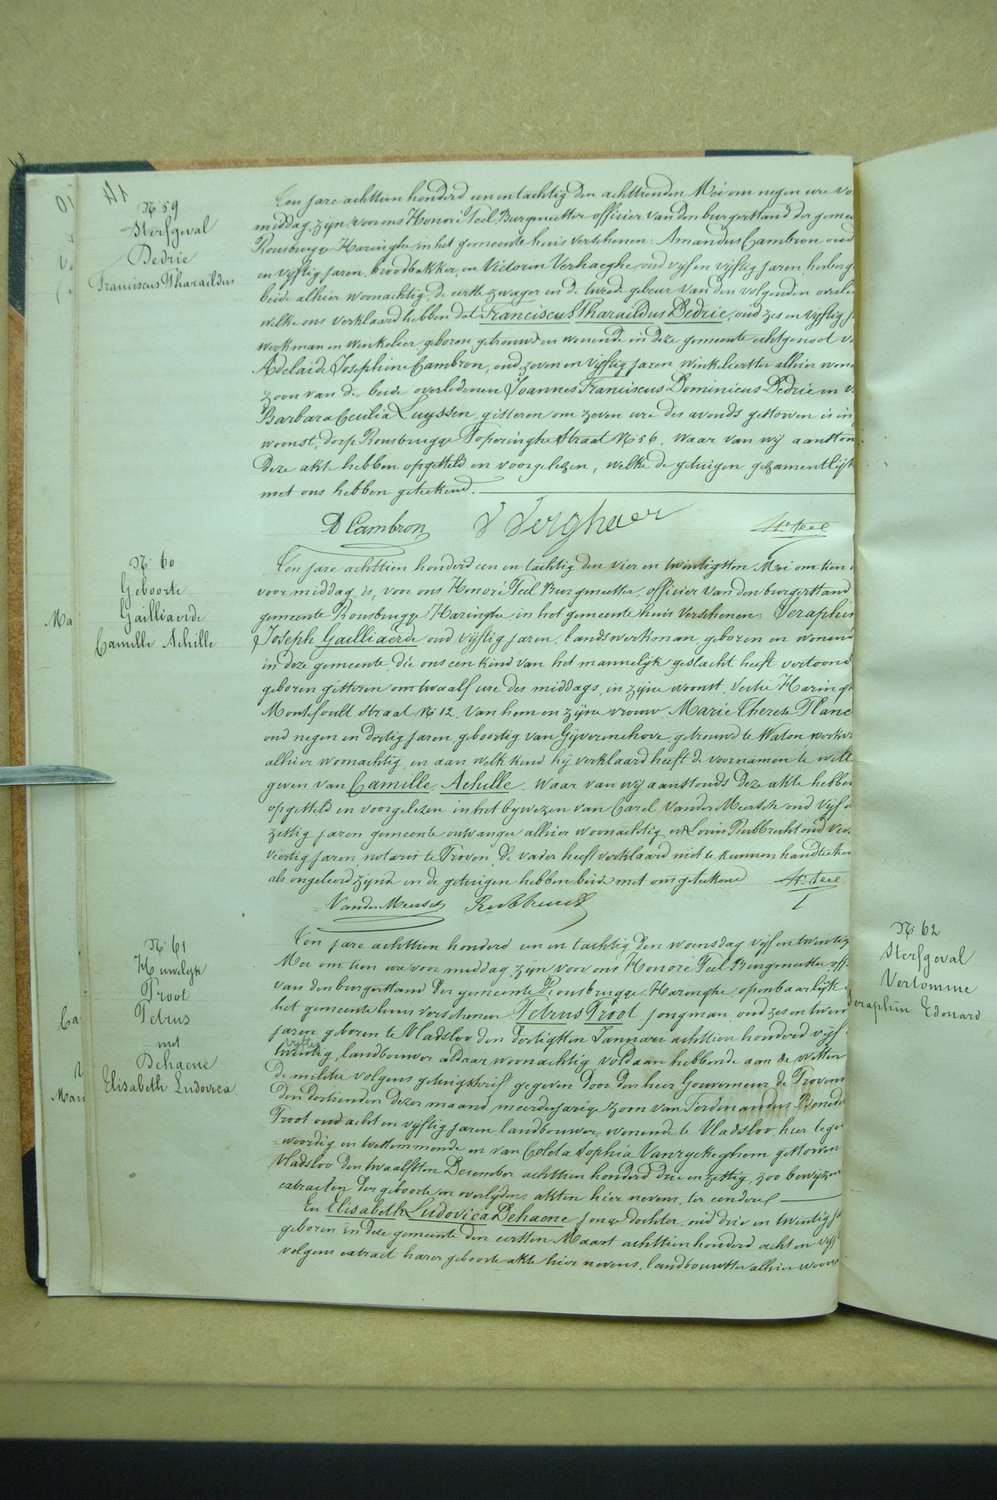 14
N 59
Sterfgeval
Dedrie
Franciscus Tharaildus
Ten jare achttien honderd een en tachtig den achttienden Mei om negen ure vo
middag, zijn voor ons Honoré Feil Burgmeester officier van den burgerstand der gemee
Rousbrugge Haringhe in het gemeente huis verschenen: Amandus Cambron oud
en vijftig jaren, broodbakker, en Victorin Verhaeghe oud vijf en vijftig jaren, herberg
beide alhier woonachtig, de eerste zwager en de tweede gebuur van den volgenden overle
welke ons verklaard hebben dat Franciscus Tharaildus Dedrie, oud zes en vijftig j
werkman en winkelier geboren getrouwd en wonende in deze gemeente echtgenoot v
Adelaide Josephine Cambron, oud zeven en vijftig jaren winkelierster alhier wone
zoon van de beide overledenen Joannes Franciscus Dominicus Dedrie en v
Barbara Cecilia Luyssen, gisteren om zeven ure des avonds gestorven is in
woonst, dorp Rousbrugge Poperinghe straat N 56. Waar van wij aanston
deze akte hebben opgesteld en voorgelezen, welke de getuigen gezamentlijk
met ons hebben geteekend.
D Cambron V Verghaeg
N 60
Geboorte
Gailliaerde
Camille Achille
Ma
Ten jare achttien honderd een en tachtig den vier en twintigsten Mei om tien
voor middag is, voor ons Honoré Feil Burgmeester, officier van den burgerstand
gemeente Rousbrugge Haringhe, in het gemeente huis verschenen Seraphin
Joseph Gailliaerde oud vijftig jaren, landswerkman geboren en wonend
in deze gemeente, die ons een kind van het mannelijk geslacht heeft vertoond
geboren gisteren om twaalf ure des middags, in zijne woonst, sectie Haringh
straat N 12, van hem en zijne vrouw Marie Therese Planc
oud negen en dertig jaren, geboortig van Gijverinchove, getrouwd te Watou werkvr
alhier woonachtig, en aan welk kind hij verklaard heeft de voornamen te will
geven van Camille Achille. Waar van wij aanstonds deze akte hebben
opgesteld en voorgelezen in het bijwezen van Carel VanderMeersch oud vijf
zestig jaren gemeente ontvanger alhier woonachtig, en Louis Rubbrecht oud
veertig jaren, notaris te Proven, de vader heeft verklaard niet te kunnen handteeken
als ongeleerd zijnde en de getuigen hebben beide met ons geteekend
VanderMeersch Rubbrecht
N 61
Huwelijk
Proot
Petrus
met
Dehaene
Elisabeth Ludovica
Ca
Mari
Ten jare achttien honderd een en tachtig den woensdag vijf en twintig
Mei om tien ure voor middag, zijn voor ons Honoré Feil Burgmeester off
van den burgerstand der gemeente Rousbrugge Haringhe, openbaarlijk
het gemeente huis verschenen Petrus Proot jongman, oud zes en twin
jaren geboren te Vladsloo den dertigsten Januari achttien honderd vijf
vijftig
twintig, landbouwer aldaar woonachtig voldaan hebbende aan de wetten
de militie volgens getuigschrift gegeven door den heer Gouverneur de Provin
den dertienden dezer maand, meerderjarige zoon van Ferdinandus Bened
Proot oud acht en vijftig jaren landbouwer, wonende te Vladsloo hier tege
woordig en toestemmende en van Coleta Sophia Vanryckeghem gestorven
Vladsloo den twaalfsten December achttien honderd drie en zestig, zoo bewijzen
extracten der geboorte en overlijdens akten hier nevens, ter eendere
En Elisabeth Ludovica Dehaene jonge dochter, oud drie en twintig j
geboren in deze gemeente den eersten Maart achttien honderd acht en vijf
volgens extract harer geboorte akte hier nevens, landbouwster alhier woon
N 62
Sterfgeval
Vertomme
Seraphin Edouard